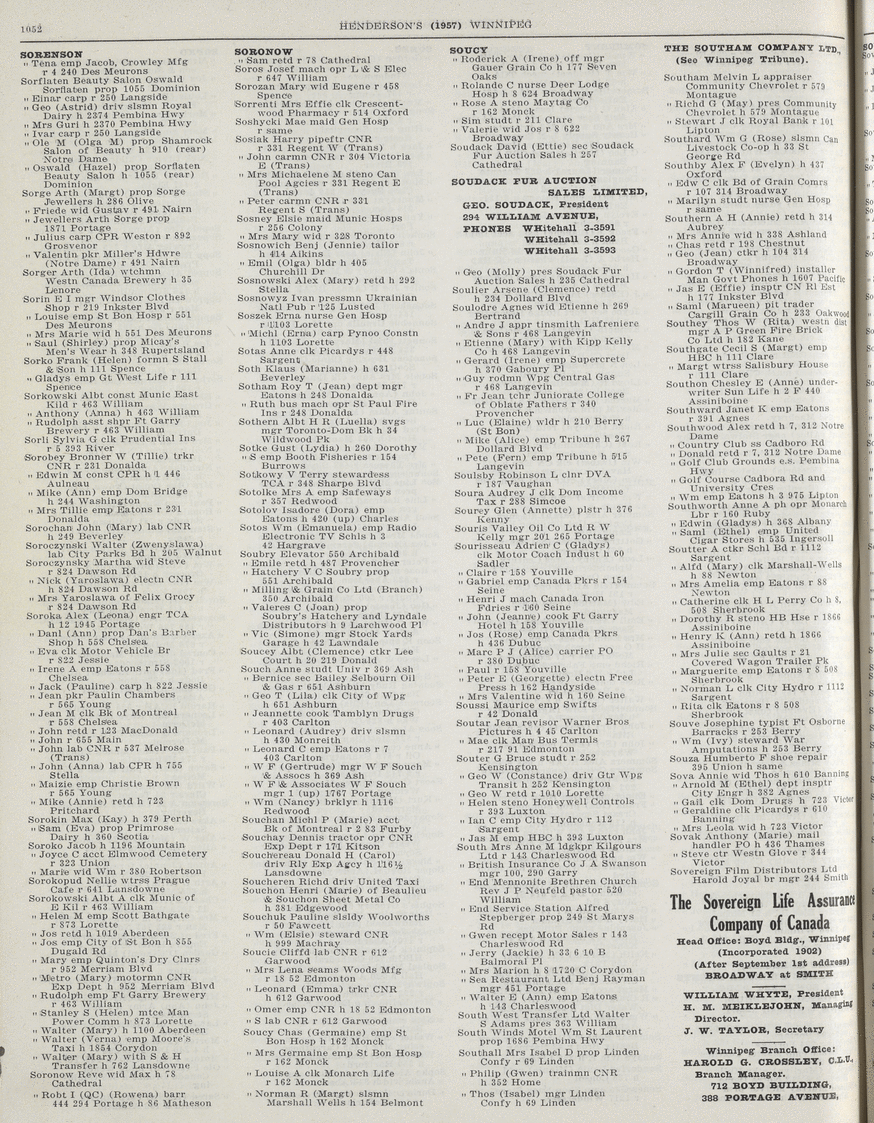 1052
HENDERSON'S (1957) WINNIPEG
SORENSON
" Tena emp Jacob, Crowley Mfg
r 4 240 Des Meurons
Sorflaten Beauty Salon Oswald
Sorflaten prop 1055 Dominion
" Einar carp r 250 Langside
" Geo (Astrid) driv slsmn Royal
Dairy h 2374 Pembina Hwy
" Mrs Guri h 2370 Pembina Hwy
" Ivar carp r 250 Langside
" Ole M (Olga M) prop Shamrock
Salon of Beauty h 910 (rear)
Notre Dame
" Oswald (Hazel) prop Sorflaten
Beauty Salon h 1055 (rear)
Dominion
Sorge Arth (Margt) prop Sorge
Jewellers h 286 Olive
" Friede wid Gustav r 491 Nairn
" Jewellers Arth Sorge prop
1871 Portage
" Julius carp CPR Weston r 892
Grosvenor
" Valentin pkr Miller's Hdwre
(Notre Dame) r 491 Nairn
Sorger Arth (Ida) wtchmn
Westn Canada Brewery h 35
Lenore
Sorin E I mgr Windsor Clothes
Shop r 219 Inkster Blvd
" Louise emp St Bon Hosp r 551
Des Meurons
" Mrs Marie wid h 551 Des Meurons
" Saul (Shirley) prop Micay's
Men's Wear h 348 Rupertsland
Sorko Frank (Helen) formn S Stall
& Son h 111 Spence
" Gladys emp Gt West Life r 111
Spence
Sorkowski Albt const Munic East
Kild r 463 William
" Anthony (Anna) h 463 William
" Rudolph asst shpr Ft Garry
Brewery r 463 William
Sorli Sylvia G clk Prudential Ins
r 5 393 River
Sorobey Bronner W (Tillie) trkr
CNR r 231 Donalda
" Edwin M const CPR h 1 446
Aulneau
" Mike (Ann) emp Dom Bridge
h 244 Washington
" Mrs Tillie emp Eatons r 231
Donalda
Sorochan John (Mary) lab CNR
h 249 Beverley
Soroczynski Walter (Zwenyslawa)
lab City Parks Bd h 205 Walnut
Soroczynsky Martha wid Steve
r 824 Dawson Rd
" Nick (Yaroslawa) electn CNR
h 824 Dawson Rd
" Mrs Yaroslawa of Felix Grocy
r 824 Dawson Rd
Soroka Alex (Leona) engr TCA
h 12 1945 Portage
" Danl (Ann) prop Dan's Barber
Shop h 558 Chelsea
" Eva clk Motor Vehicle Br
r 822 Jessie
" Irene A emp Eatons r 558
Chelsea
" Jack (Pauline) carp h 822 Jessie
" Jean pkr Paulin Chambers
r 565 Young
" Jean M clk Bk of Montreal
r 558 Chelsea
" John retd r 123 MacDonald
" John r 655 Main
" John lab CNR r 537 Melrose
(Trans)
" John (Anna) lab CPR h 755
Stella
" Maizie emp Christie Brown
r 565 Young
" Mike (Annie) retd h 723
Pritchard
Sorokin Max (Kay) h 379 Perth
" Sam (Eva) prop Primrose
Dairy h 360 Scotia
Soroko Jacob h 1196 Mountain
" Joyce C acct Elmwood Cemetery
r 323 Union
" Marie wid Wm r 380 Robertson
Sorokopud Nellie wtrss Prague
Cafe r 641 Lansdowne
Sorokowski Albt A clk Munic of
E Kil r 463 William
" Helen M emp Scott Bathgate
r 873 Lorette
" Jos retd h 1019 Aberdeen
" Jos emp City of St Bon h 855
Dugald Rd
" Mary emp Quinton's Dry Clnrs
r 952 Merriam Blvd
" Metro (Mary) motormn CNR
Exp Dept h 952 Merriam Blvd
" Rudolph emp Ft Garry Brewery
r 463 William
" Stanley S (Helen) mtce Man
Power Comm h 873 Lorette
" Walter (Mary) h 1100 Aberdeen
" Walter (Verna) emp Moore's
Taxi h 1854 Corydon
" Walter (Mary) with S & H
Transfer h 762 Lansdowne
Soronow Reve wid Max h 78
Cathedral
" Robt I (QC) (Rowena) barr
444 294 Portage h 86 Matheson
SORONOW
" Sam retd r 78 Cathedral
Soros Josef mach opr L & S Elec
r 647 William
Sorozan Mary wid Eugene r 458
Spence
Sorrenti Mrs Effie clk Crescent-
wood Pharmacy r 514 Oxford
Soshycki Mae maid Gen Hosp
r same
Sosiak Harry pipeftr CNR
r 331 Regent W (Trans)
" John carmn CNR r 304 Victoria
E (Trans)
" Mrs Michaelene M steno Can
Pool Agcies r 331 Regent E
(Trans)
" Peter carmn CNR r 331
Regent S (Trans)
Sosney Elsie maid Munic Hosps
r 256 Colony
" Mrs Mary wid r 328 Toronto
Sosnowich Benj (Jennie) tailor
h 414 Aikins
" Emil (Olga) bldr h 405
Churchill Dr
Sosnowski Alex (Mary) retd h 292
Stella
Sosnowyz Ivan pressmn Ukrainian
Natl Pub r 125 Lusted
Soszek Erna nurse Gen Hosp
r 1103 Lorette
" Michl (Erna) carp Pynoo Constn
h 1103 Lorette
Sotas Anne clk Picardys r 448
Sargent
Soth Klaus (Marianne) h 631
Beverley
Sotham Roy T (Jean) dept mgr
Eatons h 248 Donalda
" Ruth bus mach opr St Paul Fire
Ins r 248 Donalda
Sothern Albt H R (Luella) svgs
mgr Toronto-Dom Bk h 34
Wildwood Pk
Sotke Gust (Lydia) h 260 Dorothy
" S emp Booth Fisheries r 154
Burrows
Sotkowy V Terry stewardess
TCA r 348 Sharpe Blvd
Sotolke Mrs A emp Safeways
r 357 Redwood
Sotolov Isadore (Dora) emp
Eatons h 420 (up) Charles
Sotos Wm (Emanuela) emp Radio
Electronic TV Schls h 3
42 Hargrave
Soubry Elevator 550 Archibald
" Emile retd h 487 Provencher
" Hatchery V C Soubry prop
551 Archibald
" Milling & Grain Co Ltd (Branch)
350 Archibald
" Valeres C (Joan) prop
Soubry's Hatchery and Lyndale
Distributors h 9 Larchwood Pl
" Vic (Simone) mgr Stock Yards
Garage h 42 Lawndale
Soucey Albt (Clemence) ctkr Lee
Court h 20 219 Donald
Souch Anne studt Univ r 369 Ash
" Bernice sec Bailey Selbourn Oil
& Gas r 651 Ashburn
" Geo T (Lila) clk City of Wpg
h 651 Ashburn
" Jeannette cook Tamblyn Drugs
r 403 Carlton
" Leonard (Audrey) driv slsmn
h 430 Monreith
" Leonard C emp Eatons r 7
403 Carlton
" W F (Gertrude) mgr W F Souch
& Assocs h 369 Ash
" W F & Associates W F Souch
mgr 1 (up) 1767 Portage
" Wm (Nancy) brklyr h 1116
Redwood
Souchan Michl P (Marie) acct
Bk of Montreal r 2 83 Furby
Souchay Dennis tractor opr CNR
Exp Dept r 171 Kitson
Souchereau Donald H (Carol)
driv Rly Exp Agcy h 1116½
Lansdowne
Soucheren Richd driv United Taxi
Souchon Henri (Marie) of Beaulieu
& Souchon Sheet Metal Co
h 381 Edgewood
Souchuk Pauline slsldy Woolworths
r 50 Fawcett
" Wm (Elsie) steward CNR
h 999 Machray
Soucie Cliffd lab CNR r 612
Garwood
" Mrs Lena seams Woods Mfg
r 18 52 Edmonton
" Leonard (Emma) trkr CNR
h 612 Garwood
" Omer emp CNR h 18 52 Edmonton
" S lab CNR r 612 Garwood
Soucy Chas (Germaine) emp St
Bon Hosp h 162 Monck
" Mrs Germaine emp St Bon Hosp
r 162 Monck
" Louise A clk Monarch Life
r 162 Monck
" Norman R (Margt) slsmn
Marshall Wells h 154 Belmont
SOUCY
" Roderick A (Irene) off mgr
Gauer Grain Co h 177 Seven
Oaks
" Rolande C nurse Deer Lodge
Hosp h 8 624 Broadway
" Rose A steno Maytag Co
r 162 Monck
" Sim studt r 211 Clare
" Valerie wid Jos r 8 622
Broadway
Soudack David (Ettie) sec Soudack
Fur Auction Sales h 257
Cathedral
SOUDACK FUR AUCTION
SALES LIMITED,
GEO. SOUDACK, President
294 WILLIAM AVENUE,
PHONES WHitehall 3-3591
WHitehall 3-3592
WHitehall 3-3593
" Geo (Molly) pres Soudack Fur
Auction Sales h 235 Cathedral
Soulier Arsene (Clemence) retd
h 234 Dollard Blvd
Soulodre Agnes wid Etienne h 269
Bertrand
" Andre J appr tinsmith Lafreniere
& Sons r 468 Langevin
" Etienne (Mary) with Kipp Kelly
Co h 468 Langevin
" Gerard (Irene) emp Supercrete
h 370 Gaboury Pl
" Guy rodmn Wpg Central Gas
r 468 Langevin
" Fr Jean tchr Juniorate College
of Oblate Fathers r 340
Provencher
" Luc (Elaine) wldr h 210 Berry
(St Bon)
" Mike (Alice) emp Tribune h 267
Dollard Blvd
" Pete (Fern) emp Tribune h 515
Langevin
Soulsby Robinson L clnr DVA
r 187 Vaughan
Soura Audrey J clk Dom Income
Tax r 288 Simcoe
Sourey Glen (Annette) plstr h 376
Kenny
Souris Valley Oil Co Ltd R W
Kelly mgr 201 265 Portage
Sourisseau Adrien C (Gladys)
clk Motor Coach Indust h 60
Sadler
" Claire r 158 Youville
" Gabriel emp Canada Pkrs r 154
Seine
" Henri J mach Canada Iron
Fdries r 160 Seine
" John (Jeanne) cook Ft Garry
Hotel h 158 Youville
" Jos (Rose) emp Canada Pkrs
h 436 Dubuc
" Marc P J (Alice) carrier PO
r 380 Dubuc
" Paul r 158 Youville
" Peter E (Georgette) electn Free
Press h 162 Handyside
" Mrs Valentine wid h 160 Seine
Soussi Maurice emp Swifts
r 42 Donald
Soutar Jean revisor Warner Bros
Pictures h 4 45 Carlton
" Mae clk Man Bus Termls
r 217 91 Edmonton
Souter G Bruce studt r 252
Kensington
" Geo W (Constance) driv Gtr Wpg
Transit h 252 Kensington
" Geo W retd r 1010 Lorette
" Helen steno Honeywell Controls
r 393 Luxton
" Ian C emp City Hydro r 112
Sargent
" Jas M emp HBC h 393 Luxton
South Mrs Anne M ldgkpr Kilgours
Ltd r 143 Charleswood Rd
" British Insurance Co J A Swanson
mgr 100, 290 Garry
" End Mennonite Brethren Church
Rev J P Neufeld pastor 520
William
" End Service Station Alfred
Stepberger prop 249 St Marys
Rd
" Gwen recept Motor Sales r 143
Charleswood Rd
" Jerry (Jackie) h 33 6 10 B
Balmoral Pl
" Mrs Marion h 8 1720 C Corydon
" Sea Restaurant Ltd Benj Rayman
mgr 451 Portage
" Walter E (Ann) emp Eatons
h 143 Charleswood
South West Transfer Ltd Walter
S Adams pres 363 William
South Winds Motel Wm St Laurent
prop 1686 Pembina Hwy
Southall Mrs Isabel D prop Linden
Confy r 69 Linden
" Philip (Gwen) trainmn CNR
h 352 Home
" Thos (Isabel) mgr Linden
Confy h 69 Linden
THE SOUTHAM COMPANY LTD.,
(See Winnipeg Tribune).
Southam Melvin L appraiser
Community Chevrolet r 579
Montague
" Richd G (May) pres Community
Chevrolet h 579 Montague
" Stewart J clk Royal Bank r 101
Lipton
Southard Wm G (Rose) slsmn Can
Livestock Co-op h 33 St
George Rd
Southby Alex F (Evelyn) h 437
Oxford
" Edw C clk Bd of Grain Comrs
r 107 314 Broadway
" Marilyn studt nurse Gen Hosp
r same
Southern A H (Annie) retd h 314
Aubrey
" Mrs Annie wid h 338 Ashland
" Chas retd r 198 Chestnut
" Geo (Jean) ctkr h 104 314
Broadway
" Gordon T (Winnifred) installer
Man Govt Phones h 1607 Pacific
" Jas E (Effie) insptr CN Rl Est
h 177 Inkster Blvd
" Saml (Maureen) pit trader
Cargill Grain Co h 233 Oakwood
Southey Thos W (Rita) westn dist
mgr A P Green Fire Brick
Co Ltd h 182 Kane
Southgate Cecil S (Margt) emp
HBC h 111 Clare
" Margt wtrss Salisbury House
r 111 Clare
Southon Chesley E (Anne) under-
writer Sun Life h 2 F 440
Assiniboine
Southward Janet K emp Eatons
r 391 Agnes
Southwood Alex retd h 7, 312 Notre
Dame
" Country Club ss Cadboro Rd
" Donald retd r 7, 312 Notre Dame
" Golf Club Grounds e.s. Pembina
Hwy
" Golf Course Cadbora Rd and
University Cres
" Wm emp Eatons h 3 975 Lipton
Southworth Anne A ph opr Monarch
Lbr r 160 Ruby
" Edwin (Gladys) h 368 Albany
" Saml (Ethel) emp United
Cigar Stores h 535 Ingersoll
Soutter A ctkr Schl Bd r 1112
Sargent
" Alfd (Mary) clk Marshall-Wells
h 88 Newton
" Mrs Amelia emp Eatons r 88
Newton
" Catherine clk H L Perry Co h 8,
508 Sherbrook
" Dorothy R steno HB Hse r 1866
Assiniboine
" Henry K (Ann) retd h 1866
Assiniboine
" Mrs Julie sec Gaults r 21
Covered Wagon Trailer Pk
" Marguerite emp Eatons r 8 508
Sherbrook
" Norman L clk City Hydro r 1112
Sargent
" Rita clk Eatons r 8 508
Sherbrook
Souve Josephine typist Ft Osborne
Barracks r 253 Berry
" Wm (Ivy) steward War
Amputations h 253 Berry
Souza Humberto F shoe repair
395 Union h same
Sova Annie wid Thos h 610 Banning
" Arnold M (Ethel) dept insptr
City Engr h 382 Agnes
" Gail clk Dom Drugs h 723 Victor
" Geraldine clk Picardys r 610
Banning
" Mrs Leola wid h 723 Victor
Sovak Anthony (Marie) mail
handler PO h 436 Thames
" Steve ctr Westn Glove r 344
Victor
Sovereign Film Distributors Ltd
Harold Joyal br mgr 244 Smith
The Sovereign Life Assurance
Company of Canada
Head Office: Boyd Bldg., Winnipeg
(Incorporated 1902)
(After September 1st address)
BROADWAY at SMITH
WILLIAM WHYTE, President
H. M. MEIKLEJOHN, Managing
Director.
J. W. TAYLOR, Secretary
Winnipeg Branch Office:
HAROLD G. CROSSLEY, C.L.U.,
Branch Manager.
712 BOYD BUILDING,
388 PORTAGE AVENUE,